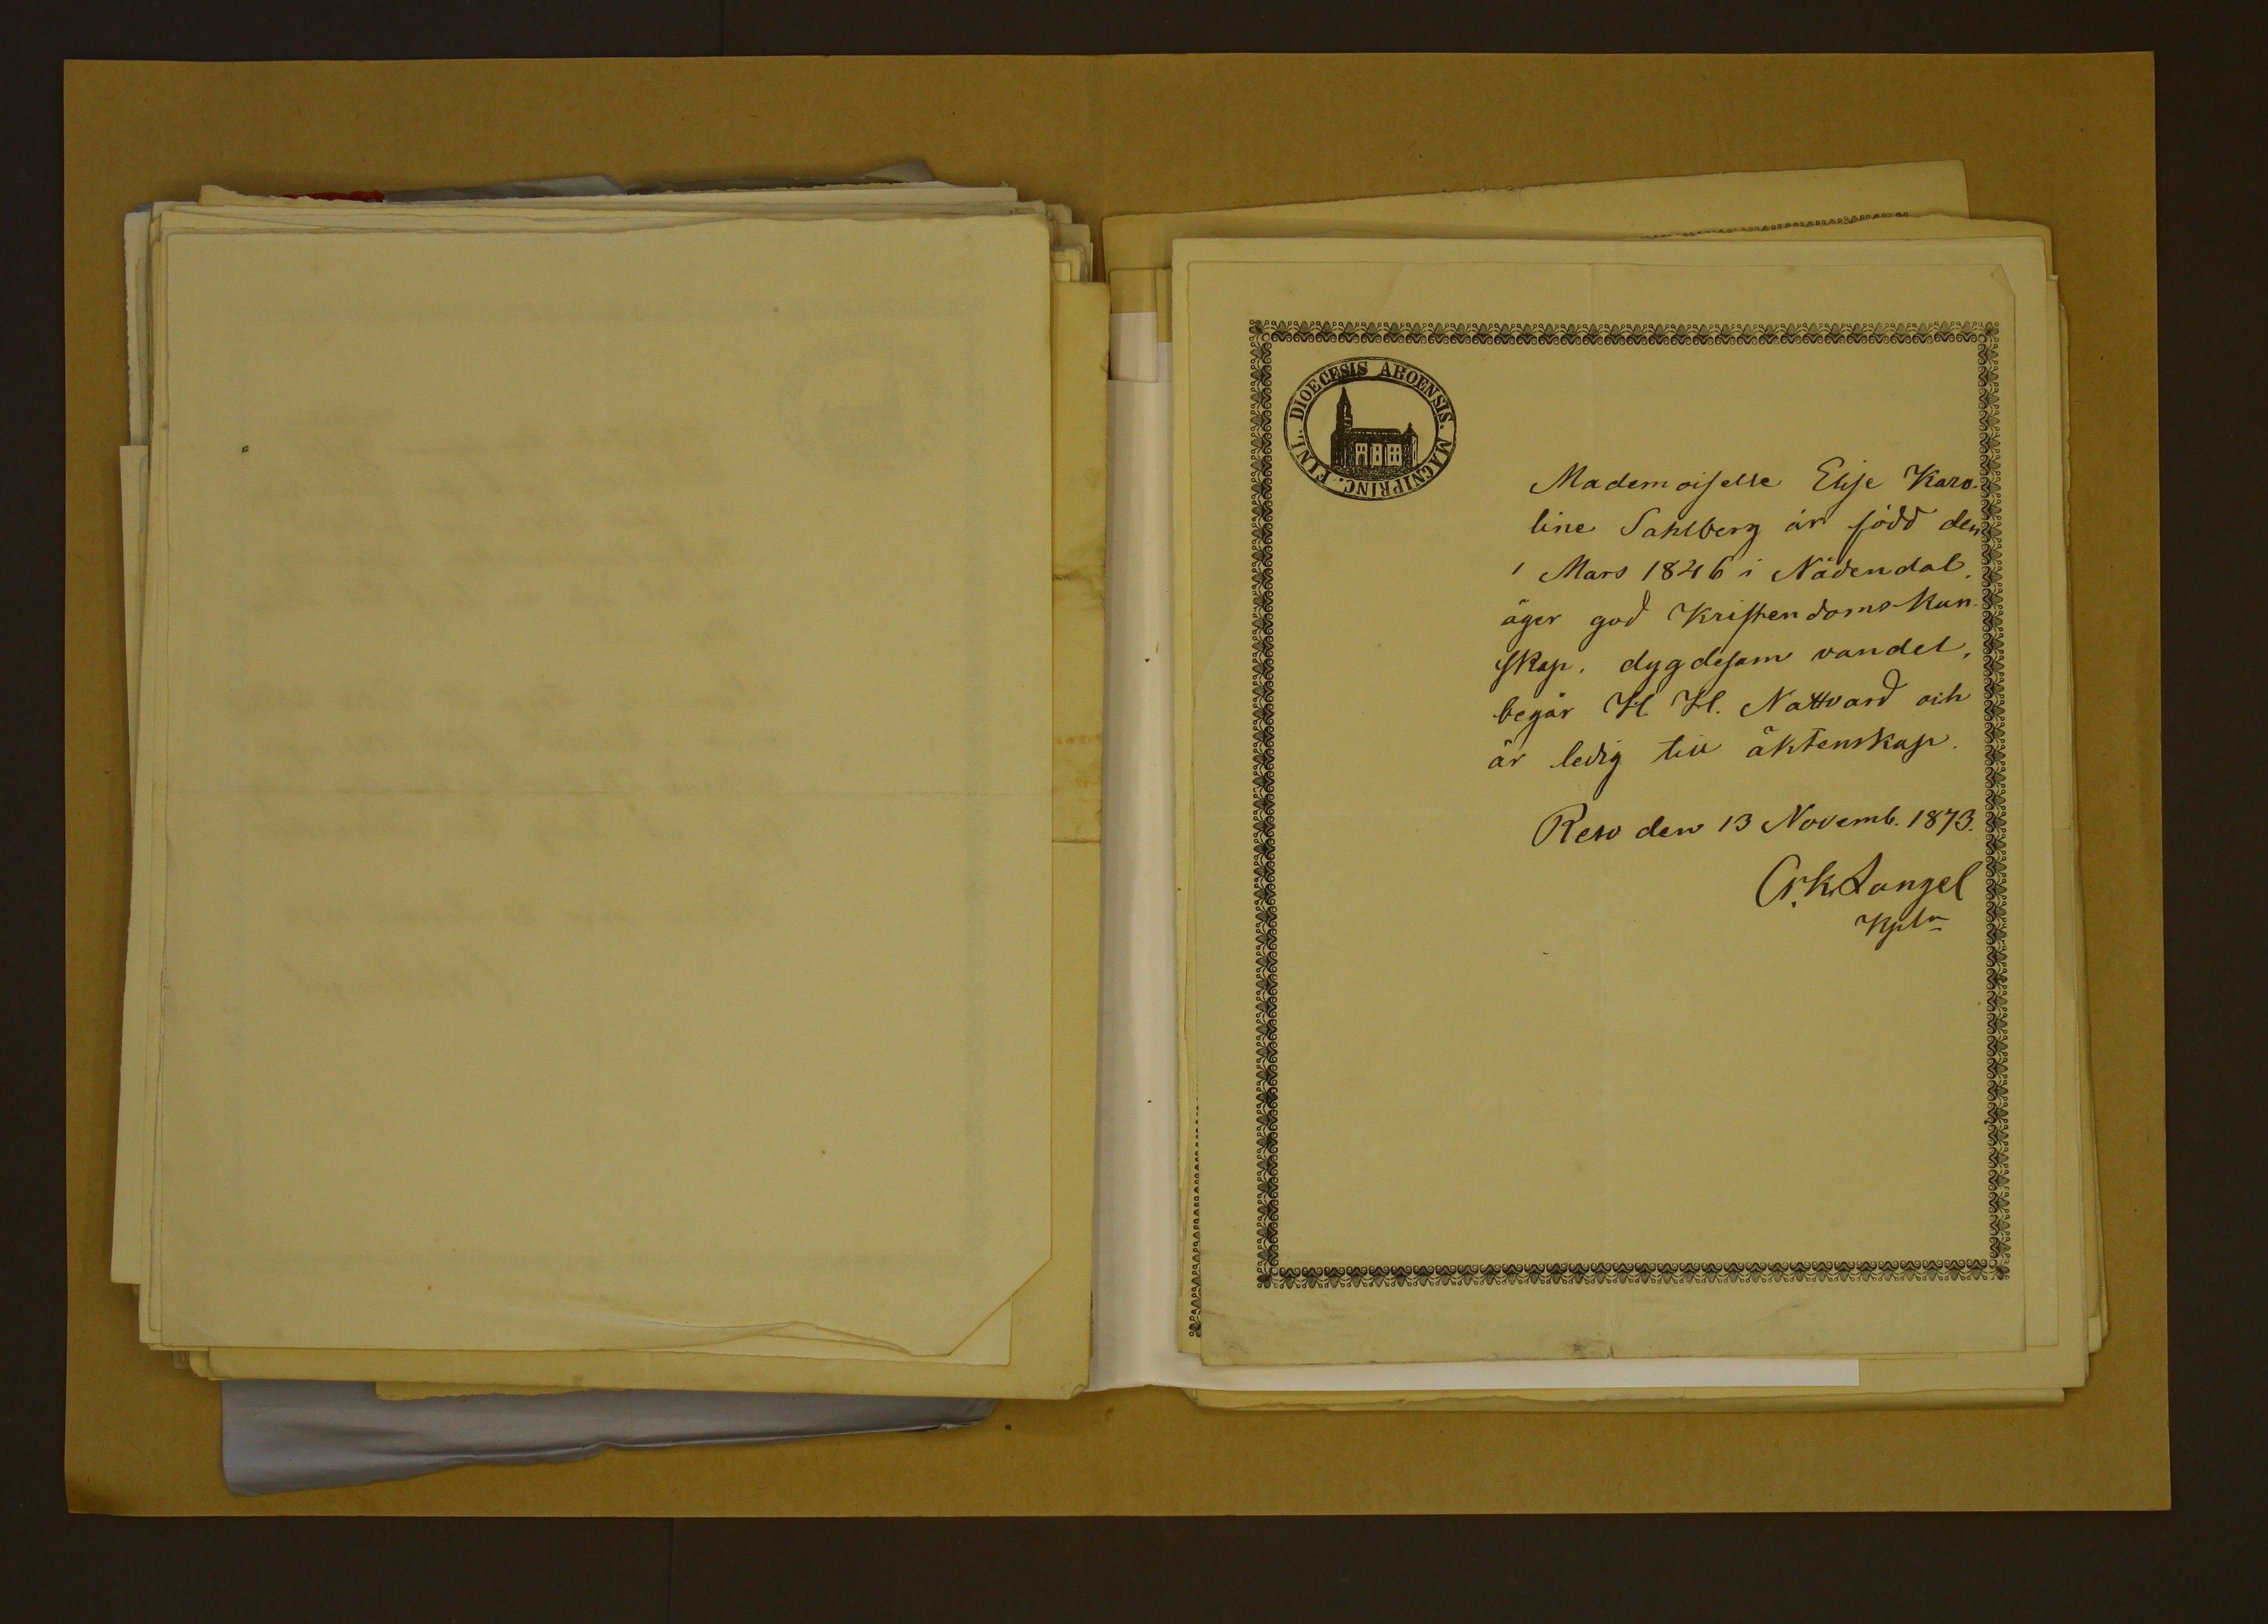 DIOECESIS ABOENSIS. MAGNI PRINC. FINL.
Mademoiselle Elise Karo-
line Sahlberg är född den
1 Mars 1846 i Nådendal,
äger god Kristendoms-Kun-
skap, dygdesam vandel,
begår H. H. Nattvard och
är ledig till äktenskap.
Reso den 13 Novemb. 1873.
Langel
Kpln